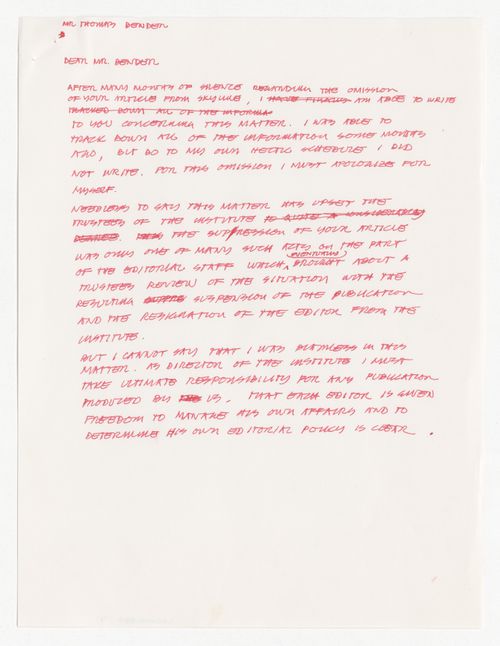 MR THOMAS BENDER
DEAR MR. BENDER
AFTER MANY MONTHS OF SILENCE REGARDING THE OMISSION
OF YOUR ARTICLE FROM SKYLINE, I HAVE FINALLY AM ABLE TO WRITE
TRACKED DOWN ALL OF THE INFORMA
TO YOU CONCERNING THIS MATTER. I WAS ABLE TO
TRACK DOWN ALL OF THE INFORMATION SOME MONTHS
AGO, BUT DO TO MY OWN HECTIC SCHEDULE I DID
NOT WRITE. FOR THIS OMISSION I MUST APOLOGIZE FOR
MYSELF.
NEEDLESS TO SAY THIS MATTER HAS UPSET THE
TRUSTEES OF THE INSTITUTE TO QUITE A CONSIDERABLE
DEGREE. THIS THE SUPRESSION OF YOUR ARTICLE
WAS ONLY ONE OF MANY SUCH ACTS ON THE PART
OF THE EDITORIAL STAFF WHICH EVENTUALLY BROUGHT ABOUT A
TRUSTEES REVIEW OF THE SITUATION WITH THE
RESULTING SUSPENSION OF THE PUBLICATION
AND THE RESIGNATION OF THE EDITOR FROM THE
INSTITUTE.
BUT I CANNOT SAY THAT I WAS BLAMELESS IN THIS
MATTER. AS DIRECTOR OF THE INSTITUTE I MUST
TAKE ULTIMATE RESPONSIBILITY FOR ANY PUBLICATION
PRODUCED BY US. THAT EACH EDITOR IS GIVEN
FREEDOM TO MANAGE HIS OWN AFFAIRS AND TO
DETERMINE HIS OWN EDITORIAL POLICY IS CLEAR.